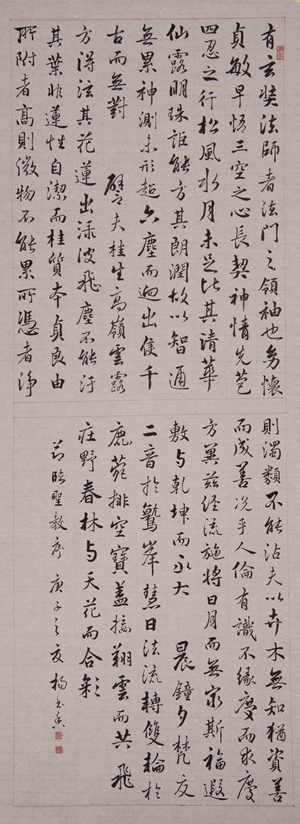 有玄奘法師者法門之領袖也幼懷
貞敏早悟三空之心長契神情先苞
四忍之行松風水月未足比其清華
仙露明珠詎能方其朗潤故以智通
無累神測未形超六塵而迥出隻千
古而無對 譬夫桂生高嶺雲露
方得泫其花蓮出淥波飛塵不能汙
其葉非蓮性自潔而桂質本貞良由
所附者高則微物不能累所憑者淨
則濁類不能沾夫以卉木無知猶資善
而成善況乎人倫有識不緣慶而求慶
方冀茲經流施將日月而無窮斯福遐
敷與乾坤而永大 晨鐘夕梵交
二音於鷲峯慧日法流轉雙輪於
鹿菀排空寶蓋接翔雲而共飛
莊野春林與天花而合彩
節臨聖教序 庚子之夏 楊